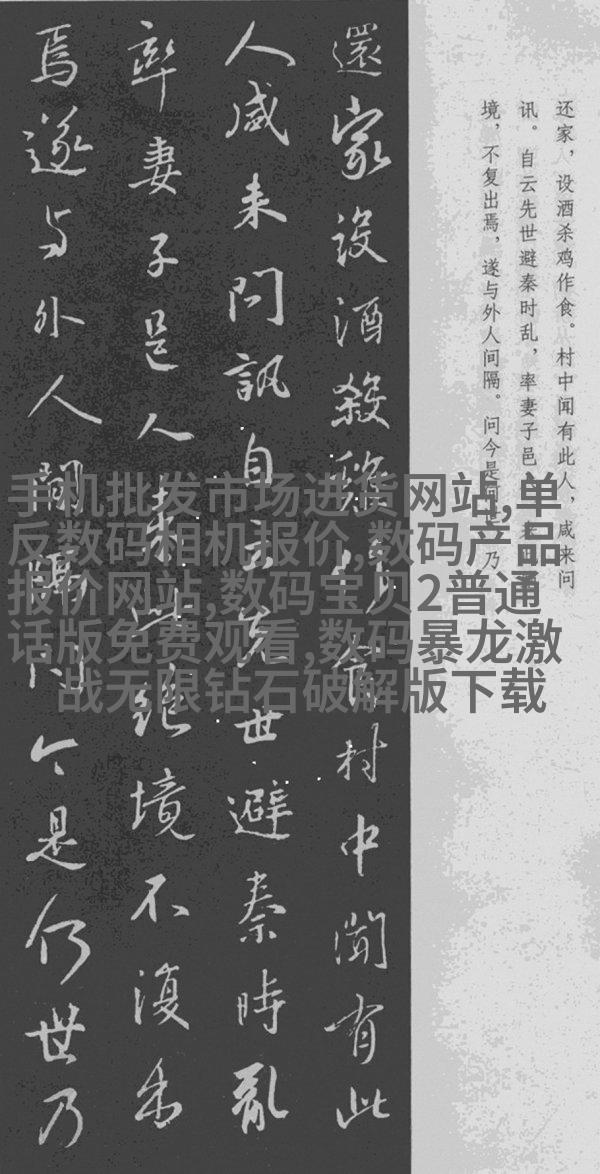 还家，设酒杀鸡作食。村中闻有此人，咸来问
讯。自云先世避秦时乱，率妻子邑
境，不复出焉，遂与外人间隔。问今是何世，乃
還家設酒殺雞作食村中聞有此
人咸来問訊自云先世避秦時亂
率妻子邑人来此絶境不復出
焉遂与外人間隔问今是何世乃
手机批发市场进货网站,单
反数码相机报价,数码产品
报价网站,数码宝贝2普通
话版免费观看,数码暴龙激
战无限钻石破解版下载